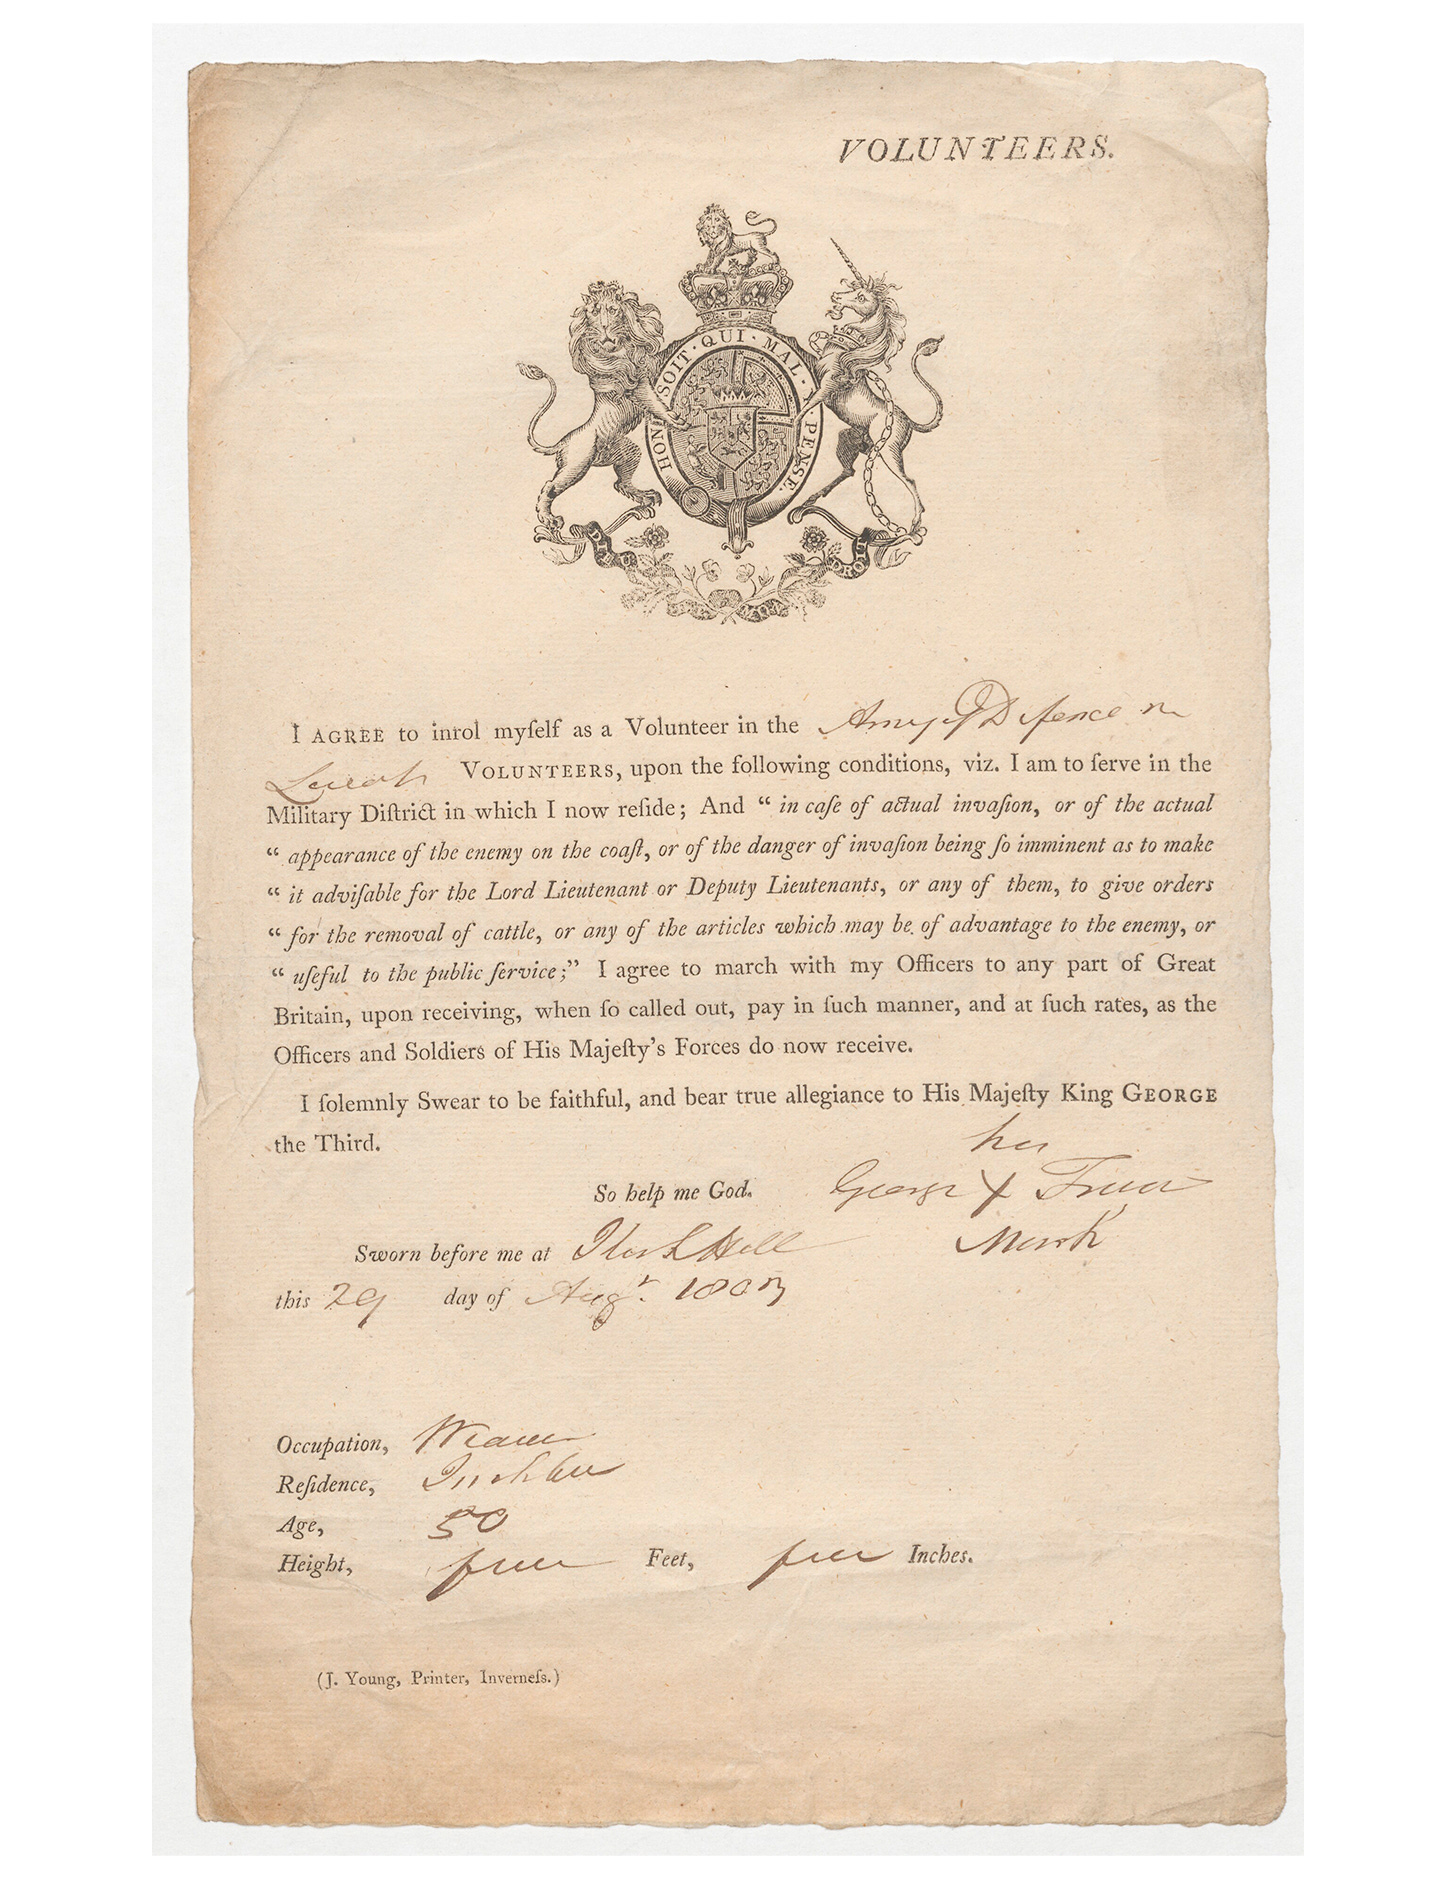 VOLUNTEERS.
HONI · SOIT · QUI · MAL · Y · PENSE.
DIEU ET MON DROIT
I AGREE to inrol myſelf as a Volunteer in the Army of Defence in
VOLUNTEERS, upon the following conditions, viz. I am to ſerve in the
Military Diſtrict in which I now reſide; And “ in caſe of actual invaſion, or of the actual
“ appearance of the enemy on the coaſt, or of the danger of invaſion being ſo imminent as to make
“ it adviſable for the Lord Lieutenant or Deputy Lieutenants, or any of them, to give orders
“ for the removal of cattle, or any of the articles which may be of advantage to the enemy, or
“ uſeful to the public ſervice;” I agree to march with my Officers to any part of Great
Britain, upon receiving, when ſo called out, pay in ſuch manner, and at ſuch rates, as the
Officers and Soldiers of His Majeſty’s Forces do now receive.
I ſolemnly Swear to be faithful, and bear true allegiance to His Majeſty King GEORGE
the Third.
his
So help me God. George X
Mark
Sworn before me at
this 29 day of Augt. 1803
Occupation, Weaver
Reſidence,
Age, 50
Height, five Feet, five Inches.
(J. Young, Printer, Inverneſs.)